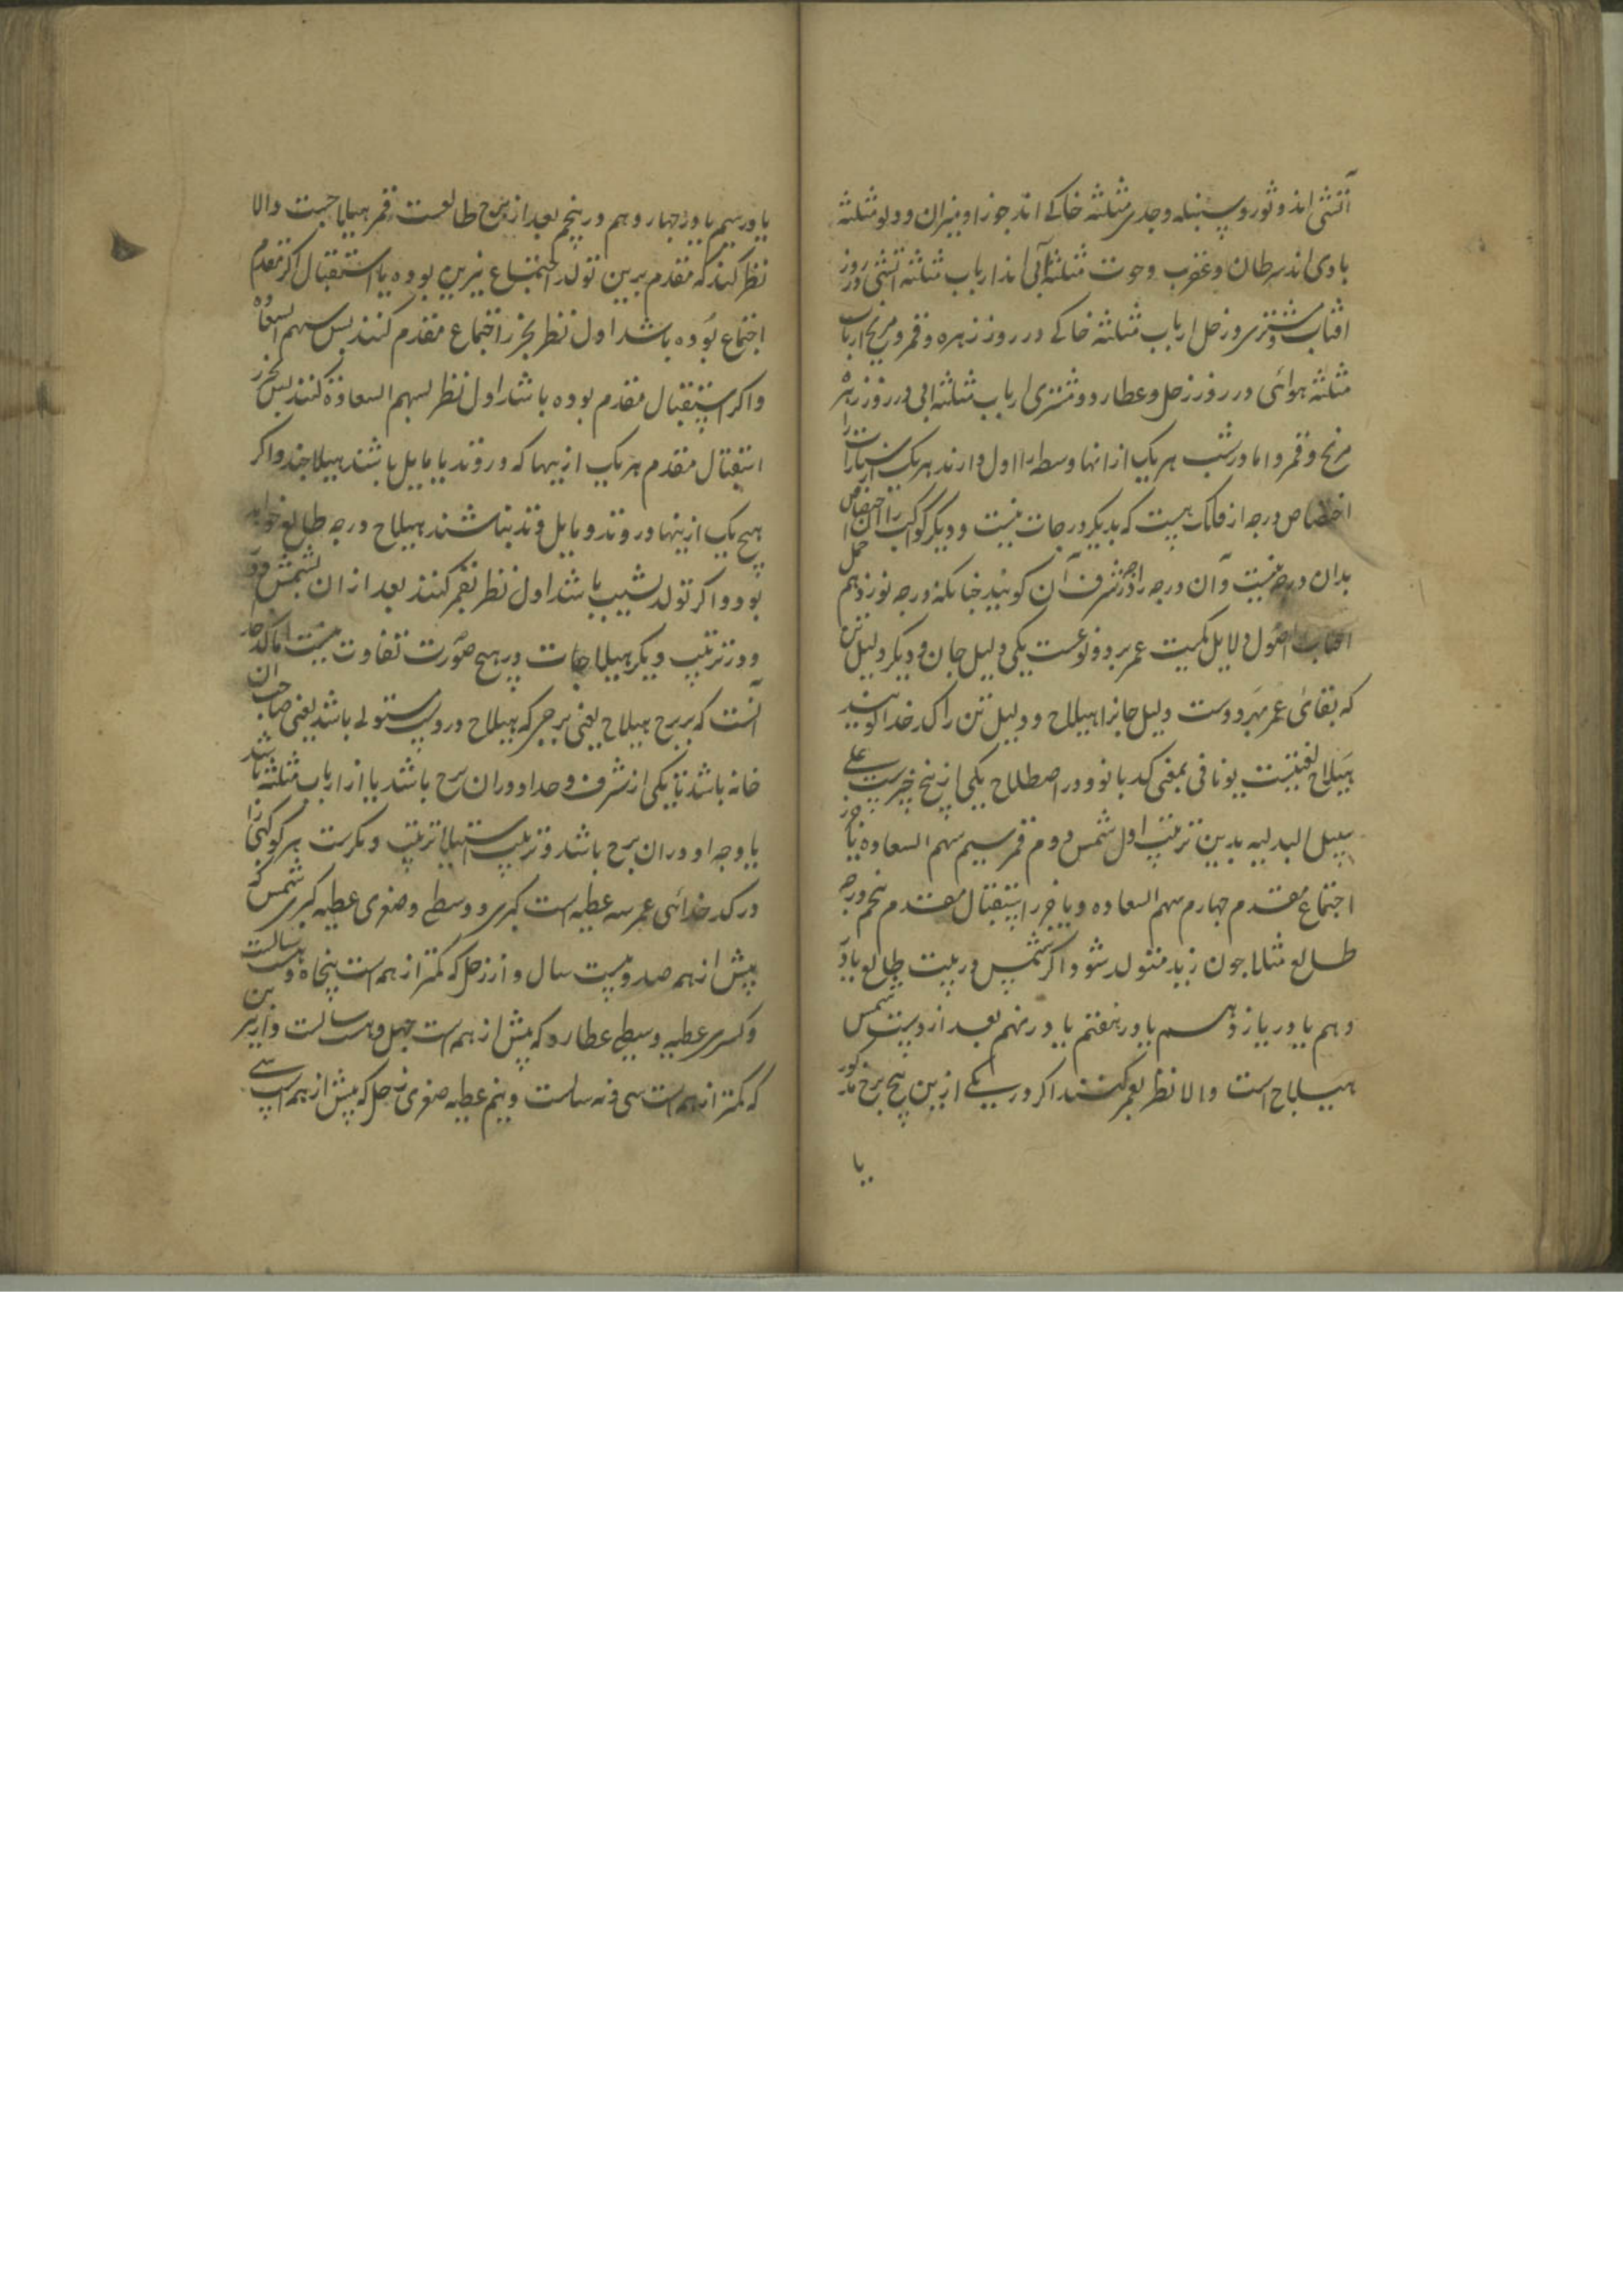 آتشی اند و ثور و سنبله و جدی مثلثه خاکے اند جوزا و میزان و دلو مثلثه
بادی اند سرطان و عقرب و حوت مثلثه آبی اند ارباب مثلثه اتشی در روز
افتاب و مشتری و زحل ارباب مثلثه خاکے در روز زهره و قمر و مریخ ارباب
مثلثه هوائی در روز زحل و عطارد و مشتری ارباب مثلثه ابی در روز زهره
مریخ و قمر و اما در شب هر یک از انها وسطه را اول دارند هر یک از سیارات را
اختصاص درجه از فلک هست که بدیکر درجات نیست و دیکر کواکب را ان اختصاص
بدان درجه نیست و آن درجه را درجه شرف آن کویند چنانکه درجه نوزدهم حمل
افتاب اصول دلایل کمیت عمر بر دو نوعست یکی دلیل جان و دیکر دلیل تن
که بقائی عمر بهر دوست دلیل جانرا هیلاج و دلیل تن را کدخدا کویند
هیلاج لغتیست یونانی بمعنی کدبانو و در اصطلاح یکی از پنج چیزست علے
سبیل البدلیه بدین ترتیب اول شمس دوم قمر سیم سهم السعاده یا جزر
اجتماع مقدم چهارم سهم السعاده و یا جزر استقبال مقدم پنجم درجه
طالع مثلا چون زید متولد شود اکر شمس در بیت طالع یا در
دهم یا در یازدهم یا در هفتم یا در نهم بعد از دست شمس
هیلاج است و الا نظر بقمر کنند اکر در یکے ازین پنج برج مذکور
یا
یا در سیم یا در چهارم و هم در پنجم بعد از برج طالعست قمر هیلاجست والا
نظر کنند که مقدم برین تولد اجتماع نیرین بوده یا استقبال اکر مقدم
اجتماع بوده باشد اول نظر بجزر اجتماع مقدم کنند پس بسهم السعاده
واکر استقبال مقدم بوده باشد اول نظر بسهم السعاده کنند پس بجزر
استقبال مقدم هر یک ازینها که در وتد یا مایل باشند هیلاجند واکر
هیچ یک ازینها در وتد و مایل وتد نباشند هیلاج درجه طالع خواهد
بود و اکر تولد بشب باشد اول نظر بقمر کنند بعد از ان بشمس و در
و در ترتیب دیکر هیلاجات در هیچ صورت تفاوت نیست اما کدخدا
آنست که بر برج هیلاج یعنی برجی که هیلاج دروست مستولے باشد یعنی صاحب ان
خانه باشد تا یکی از شرف و حد او در ان برج باشد یا از ارباب مثلثه باشد
یا وجه او در ان برج باشد و ترتیب استیلا ترتیب دیکرست هر کوکبی را
در کدخدائی عمر سه عطیه است کبری و وسطے و صغری عطیه کبری شمس که
بیش از همه صد و بیست سال و از زحل که کمتر از همه است پنجاه و هفت سالست
عطیه وسطے عطارد که بیش از همه است چهل و هشت سالست و از
که کمتر از همه است سی و نه سالست و نیم عطیه صغری زحل که بیش از همه است سے